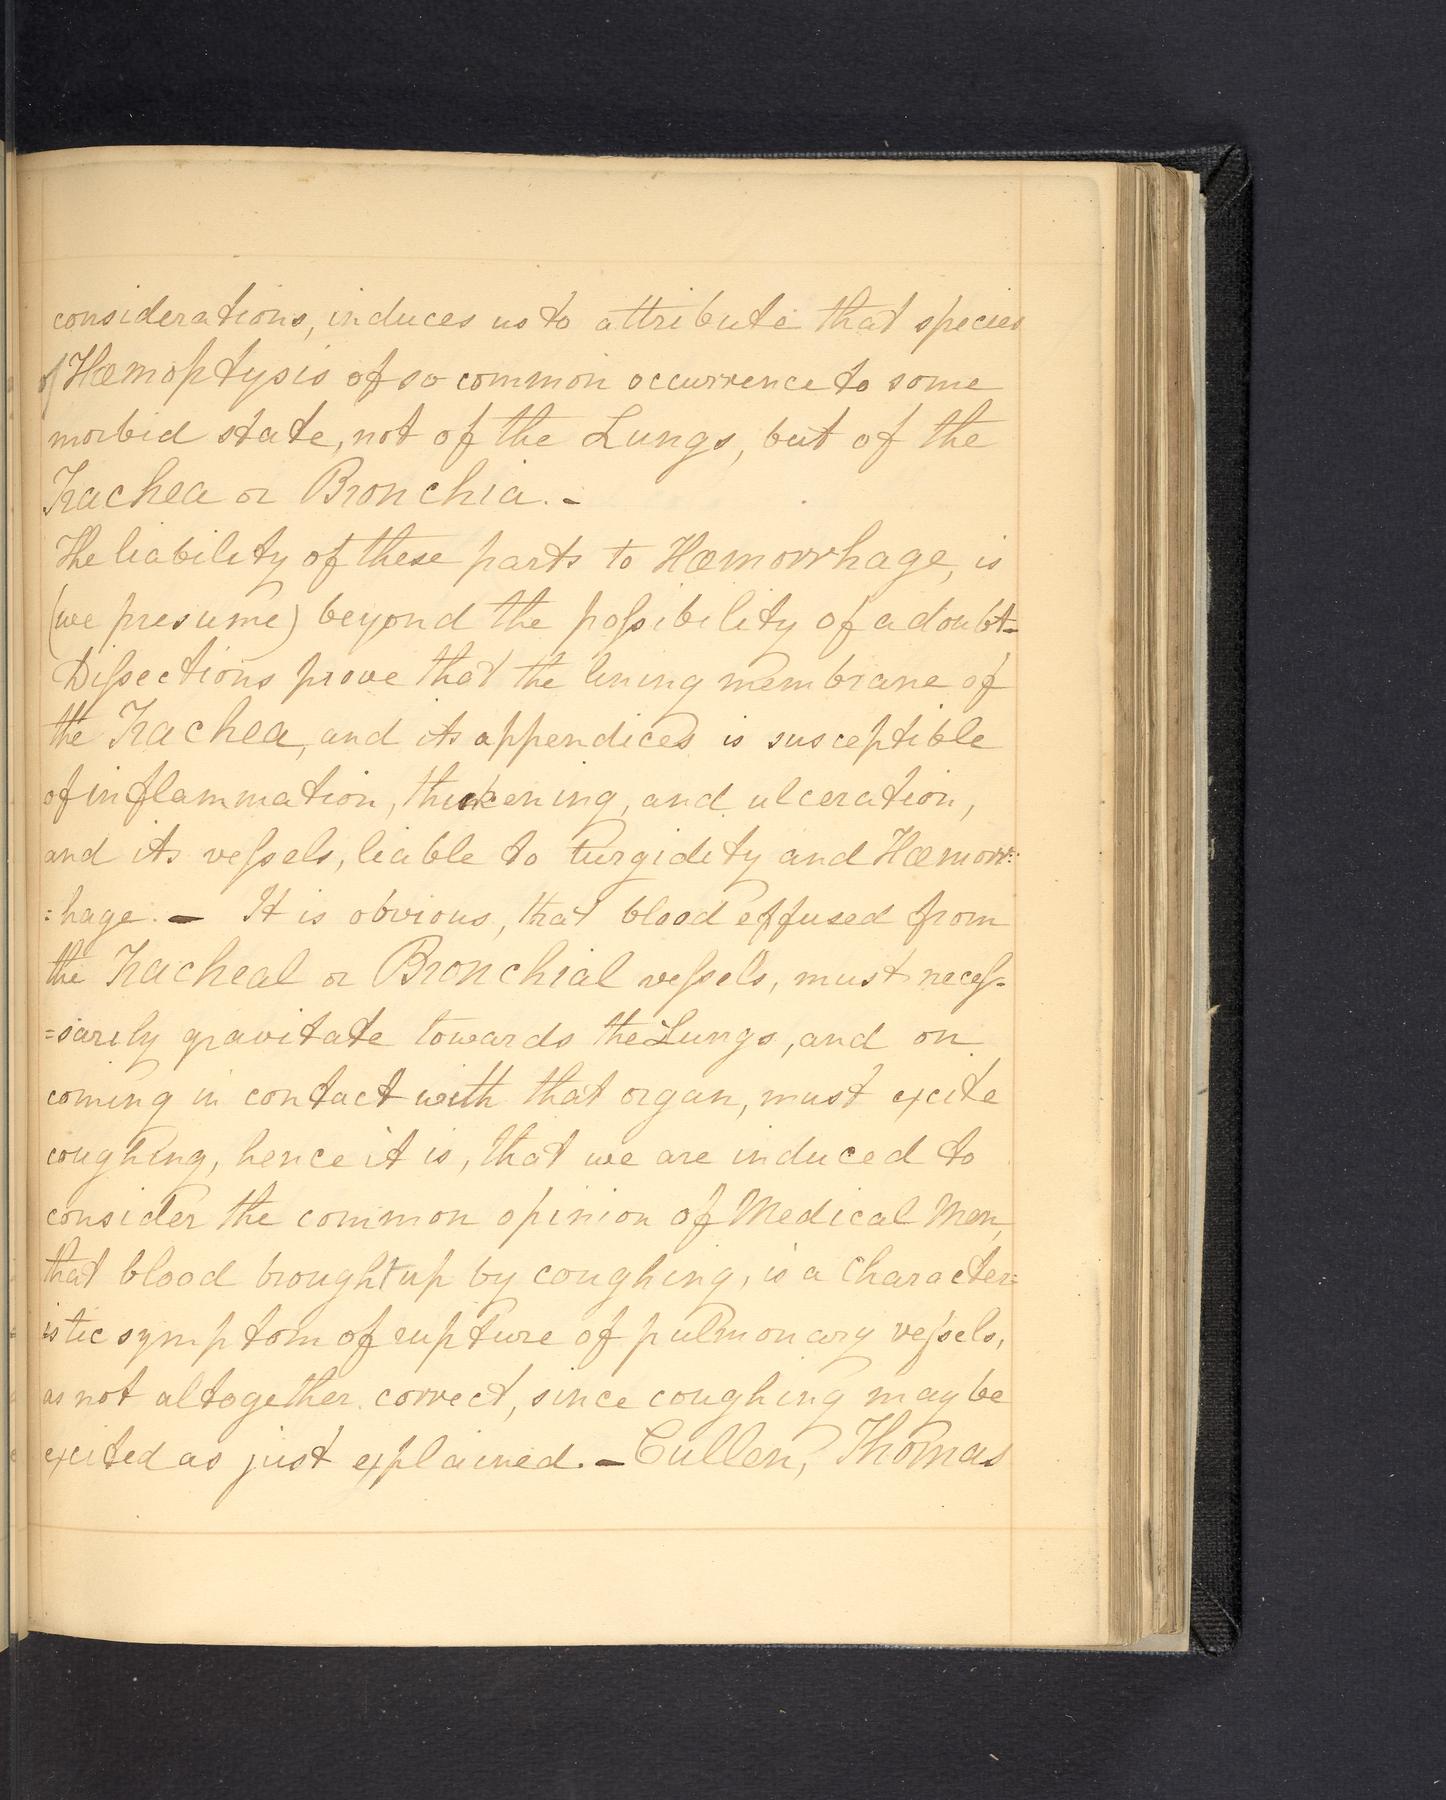 considerations, induces us to attribute that species
of Hæmoptysis of so common occurrence to some
morbid state, not of the Lungs, but of the
Trachea or Bronchia. -
The liability of these parts to Hæmorrhage, is
(we presume) beyond the poſsibility of a doubt-
Diſsections prove that the lining membrane of
the Trachea, and its appendices is susceptible
of inflammation, thickening, and ulceration,
and its veſsels, liable to turgidity and Hæmorr:
:hage. - It is obvious, that blood effused from
the Tracheal or Bronchial veſsels, must neceſ-
=sarily gravitate towards the Lungs, and on
coming in contact with that organ, must excite
coughing, hence it is, that we are induced to
consider the common opinion of Medical Men,
that blood brought up by coughing, is a character=
istic symptom of rupture of pulmonary veſsels,
as not altogether correct, since coughing may be
excited as just explained. - Cullen, Thomas